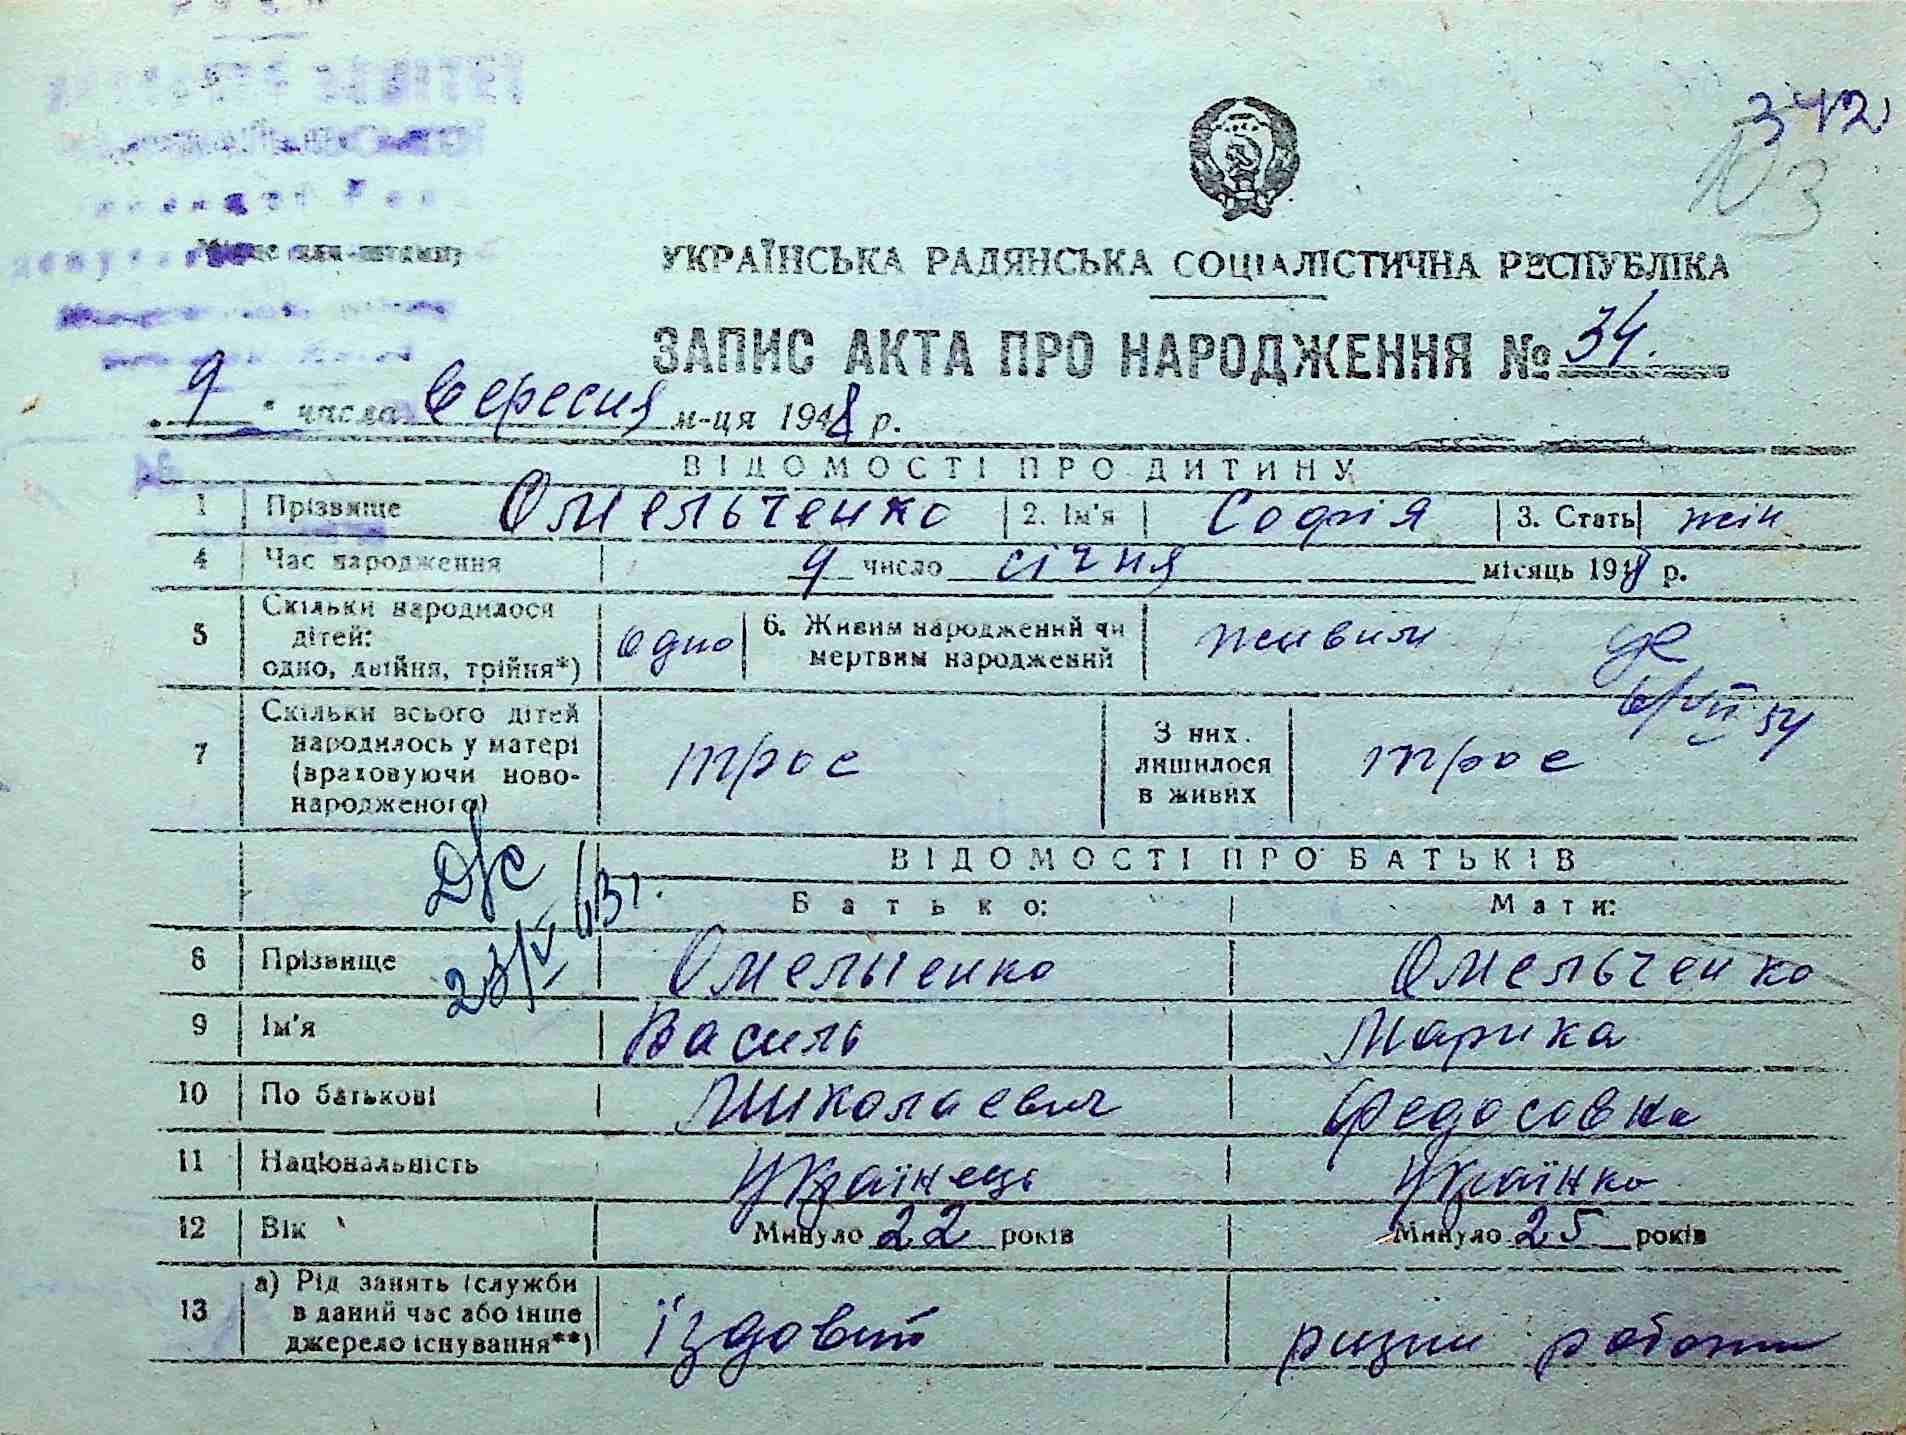 342
103
Місце для штампу
УКРАЇНСЬКА РАДЯНСЬКА СОЦІАЛІСТИЧНА РЕСПУБЛІКА
ЗАПИС АКТА ПРО НАРОДЖЕННЯ № 34.
"9" числа вересня м-ця 1948 р.
ВІДОМОСТІ ПРО ДИТИНУ
1 Прізвище Омельченко 2. Ім'я Софія 3. Стать жін
4 Час народження 9 число січня місяць 1948 р.
5 Скільки народилося дітей: одно, двійня, трійня*) одно 6. Живим народжений чи мертвим народжений живим
7 Скільки всього дітей народилось у матері (враховуючи новонародженого) троє З них лишилося в живих троє
23/V 63 г.
ВІДОМОСТІ ПРО БАТЬКІВ
Батько: Мати:
8 Прізвище Омельченко Омельченко
9 Ім'я Василь Марика
10 По батькові Миколаевич Федосовна
11 Національність Українець Українка
12 Вік Минуло 22 років Минуло 25 років
13 а) Рід занять (служби в даний час або інше джерело існування**) їздовий ризни роботи